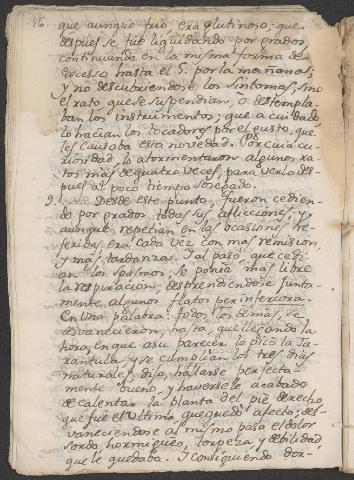 16.
que aunque frio, era glutinoso; que
despues se fue liquidando por grados
continuando en la misma forma de
excesso hasta el 5. por la mañana;
y no descubriendose los sintomas, sino
el rato que se suspendian, o destempla
ban los instrumentos; que a cuidado
lo hacian los tocadores por el gusto, que
les causaba esta novedad. Por cuia cu
riosidad, lo atormentaron algunos ra
tos mas de quatro veces, para verlo des
pues al poco tiempo sosegado.
9. Desde este punto, fueron cedien
do por grados todas sus aflicciones, y
aunque repetian en las ocasiones re
feridas, era cada vez con mas remision,
y mas tardanza. Y al paso, que cedi
an los espasmos, se ponia mas libre
la respiracion, desprendiendose junta
mente algunos flatos per inferiora.
En una palabra: todos los demás, se
desvanecieron, hasta, que llegando la
hora, en que a su parecer le picó la Ta
rantula, y se cumplian los tres dias
naturales, dijo, hallarse perfecta
mente bueno, y haversele acabado
de calentar la planta del pie derecho,
que fue el ultimo, que quedó afecto; des
vaneciendose al mismo paso el dolor
sordo, hormigueo, torpeza y debilidad
que le quedaba. Y consiguiendo dor-